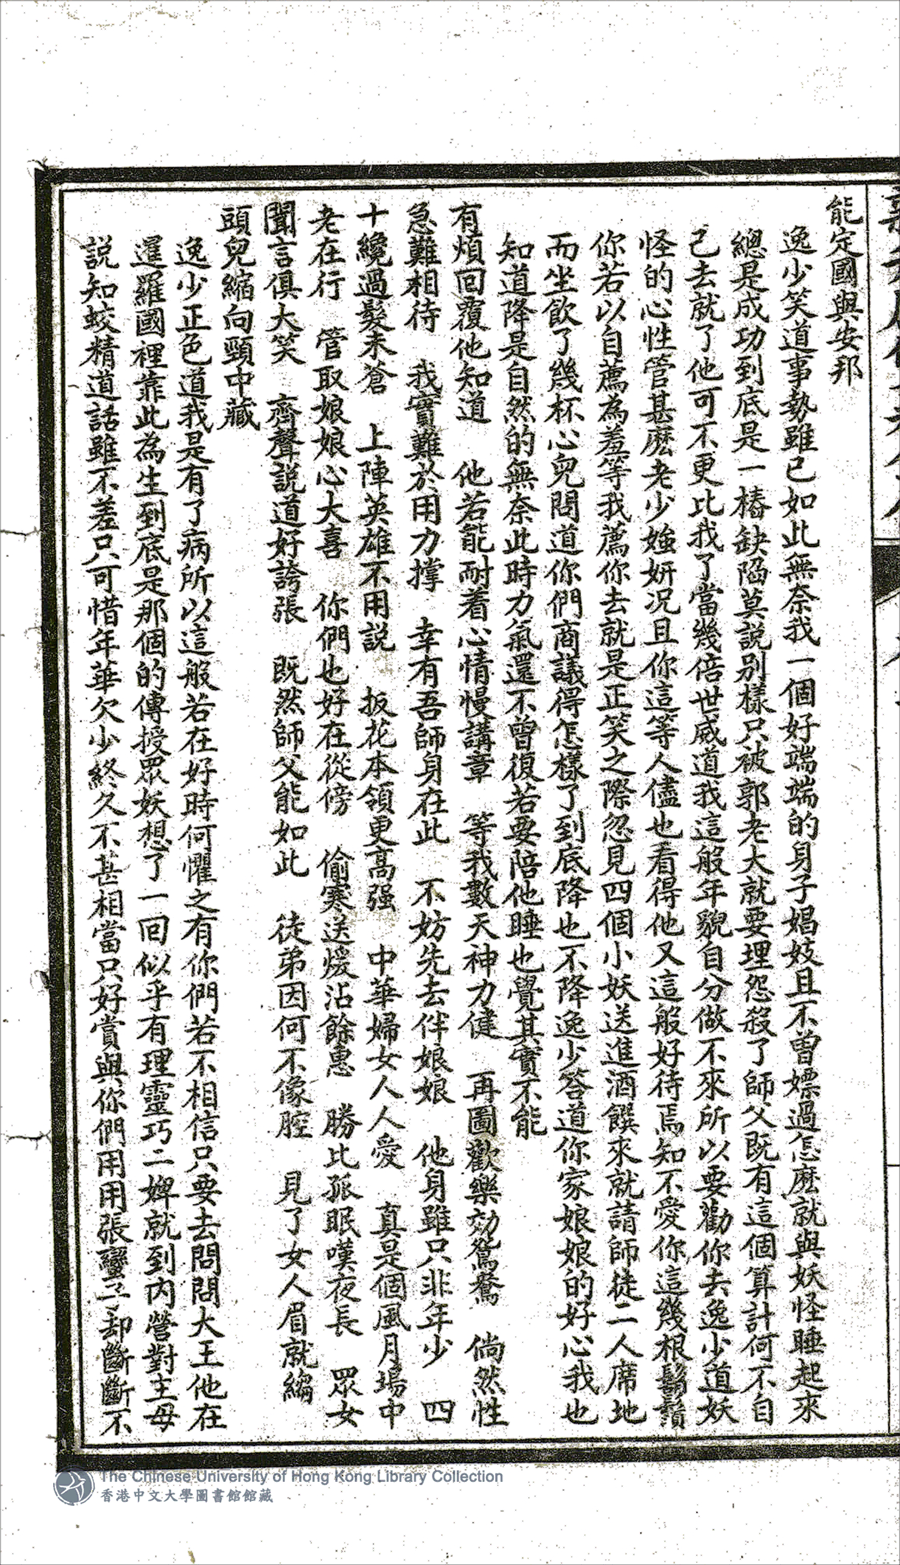 能定國與安邦
逸少笑道事勢雖已如此無奈我一個好端端的身子娼妓且不曾嫖過怎麽就與妖怪睡起來
總是成功到底是一樁缺陷莫說别樣只被郭老大就要理怨殺了師父既有這個算計何不自
己去就了他可不更比我了當幾倍世威道我這般年貌自分做不來所以要勸你去逸少道妖
怪的心性管甚麽老少媸妍况且你這等人儘也看得他又這般好待焉知不愛你這幾根鬍鬚
你若以自薦為羞等我薦你去就是正笑之際忽見四個小妖送進酒饌來就請師徒二人席地
而坐飲了幾杯心兒問道你們商議得怎樣了到底降也不降逸少答道你家娘娘的好心我也
知道降是自然的無奈此時力氣還不曾復若要陪他睡也覺其實不能
有煩回覆他知道　他若能耐着心情慢講章　等我數天神力健　再圖歡樂効鴛鴦　倘然性
急難相待　我實難於用力撑　幸有吾師身在此　不妨先去伴娘娘　他身雖只非年少　四
十纔過髮未蒼　上陣英雄不用說　扳花本領更高强　中華婦女人人愛　真是個風月場中
老在行　管取娘娘心大喜　你們也好在從傍　偷寒送煖沾餘惠　勝比孤眠嘆夜長　眾女
聞言俱大笑　齊聲說道好誇張　既然師父能如此　徒弟因何不像腔　見了女人眉就縐
頭兒縮向頸中藏
逸少正色道我是有了病所以這般若在好時何懼之有你們若不相信只要去問問大王他在
暹羅國裡靠此為生到底是那個的傳授眾妖想了一回似乎有理靈巧二婢就到内營對主母
說知蛟精道話雖不差只可惜年華欠少終久不甚相當只好賞與你們用用張蠻子却斷斷不
The Chinese University of Hong Kong Library Collection
香港中文大學圖書館館藏